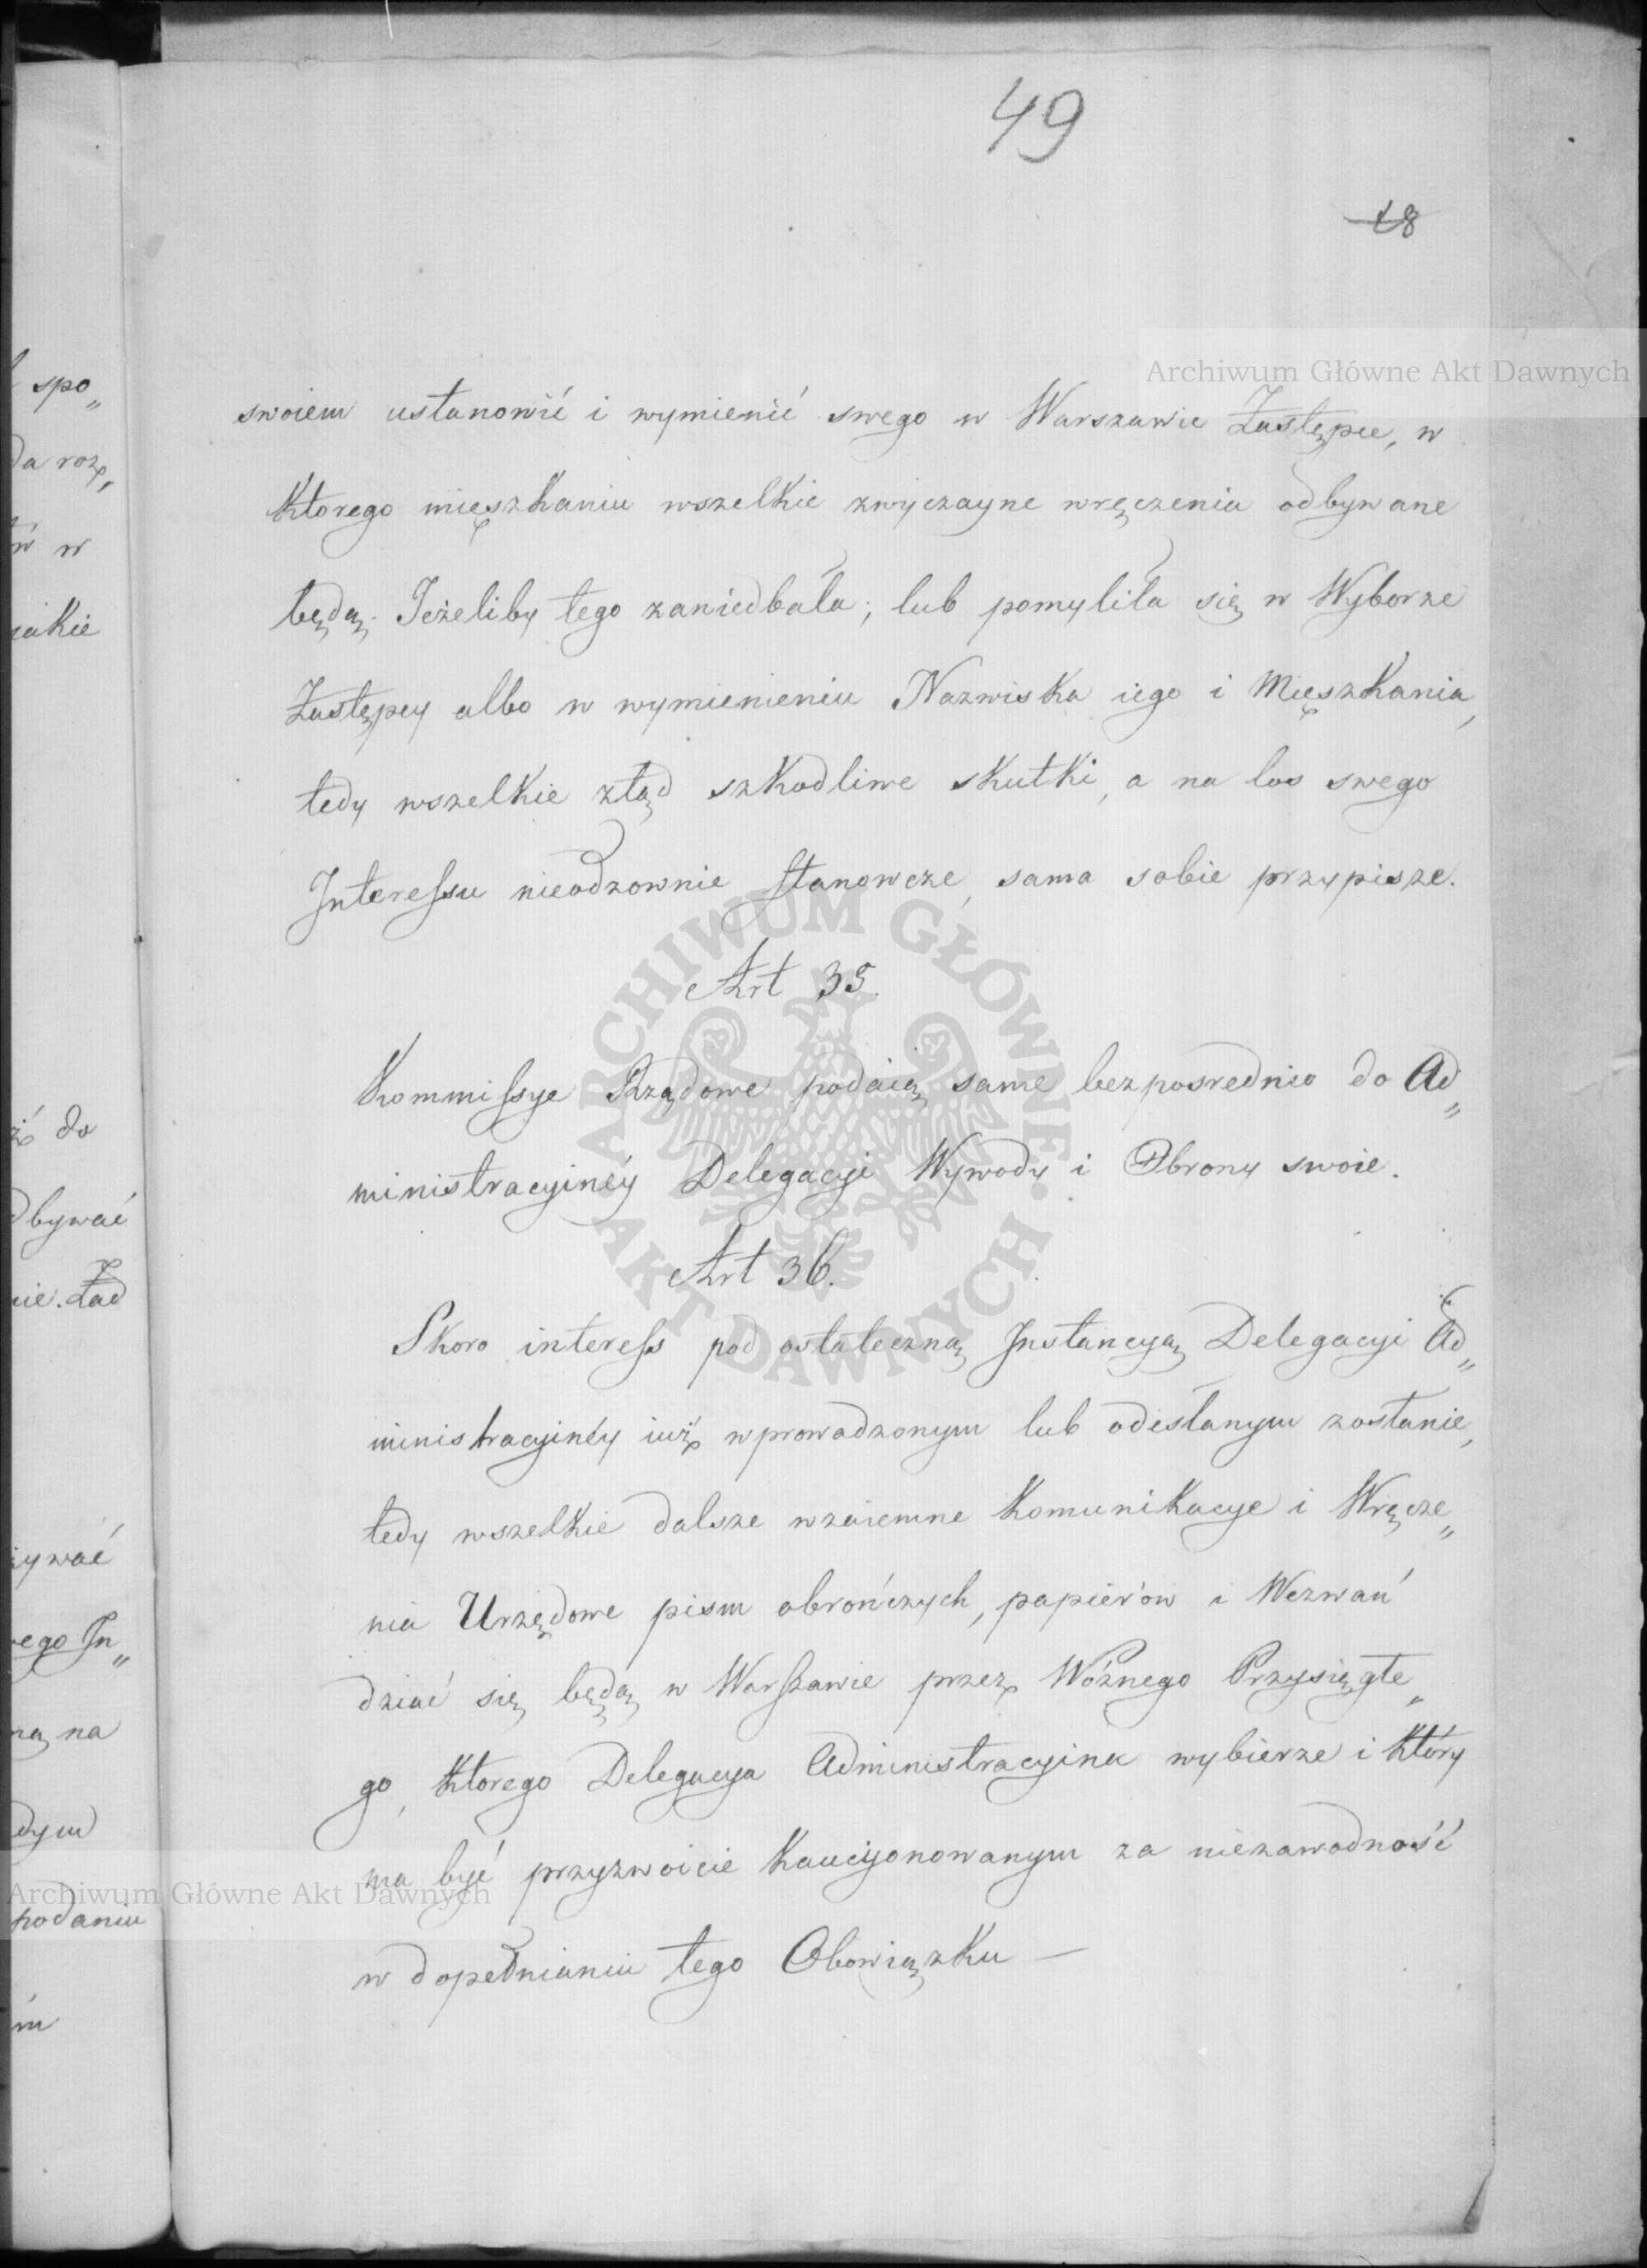 49
18
swoiem ustanowić i wymienić swego w Warszawie Zastępce, w
którego mięszkaniu wszelkie zwyczayne wręczenia odbywane
będą. Jeżeliby tego zaniedbała, lub pomyliła się w Wyborze
Zastępcy albo w wymienieniu Nazwiska iego i Mięszkania,
tedy wszelkie ztąd szkodliwe skutki, a na los swego
Interessu nieodzownie stanowcze, sama sobie przypisze.
Art 35.
Kommissye Rządowe podaią same bezpośrednio do Ad„
ministracyinéy Delegacyi Wywody i Obrony swoie.
Art 36.
Skoro interess pod ostateczną Instancyą Delegacyi Ad„
ministracyinéy iuż wprowadzonym lub odesłanym zostanie,
tedy wszelkie dalsze wzaiemne Komunikacye i Wręcze„
nia Urzędowe pism obrończych, papierów i Wezwań
dziać się będą w Warszawie przez Woźnego Przysięgłe„
go, którego Delegacya Administracyina wybierze i który
ma być przyzwoicie Kaucyonowanym za niezawodność
w dopełnianiu tego Obowiązku —
spo„
da roz„
w
iakie
do
dbywać
nie. Zad
ywać
ego In„
na
dym
podaniu
Archiwum Główne Akt Dawnych
ARCHIWUM GŁÓWNE AKT DAWNYCH
Archiwum Główne Akt Dawnych